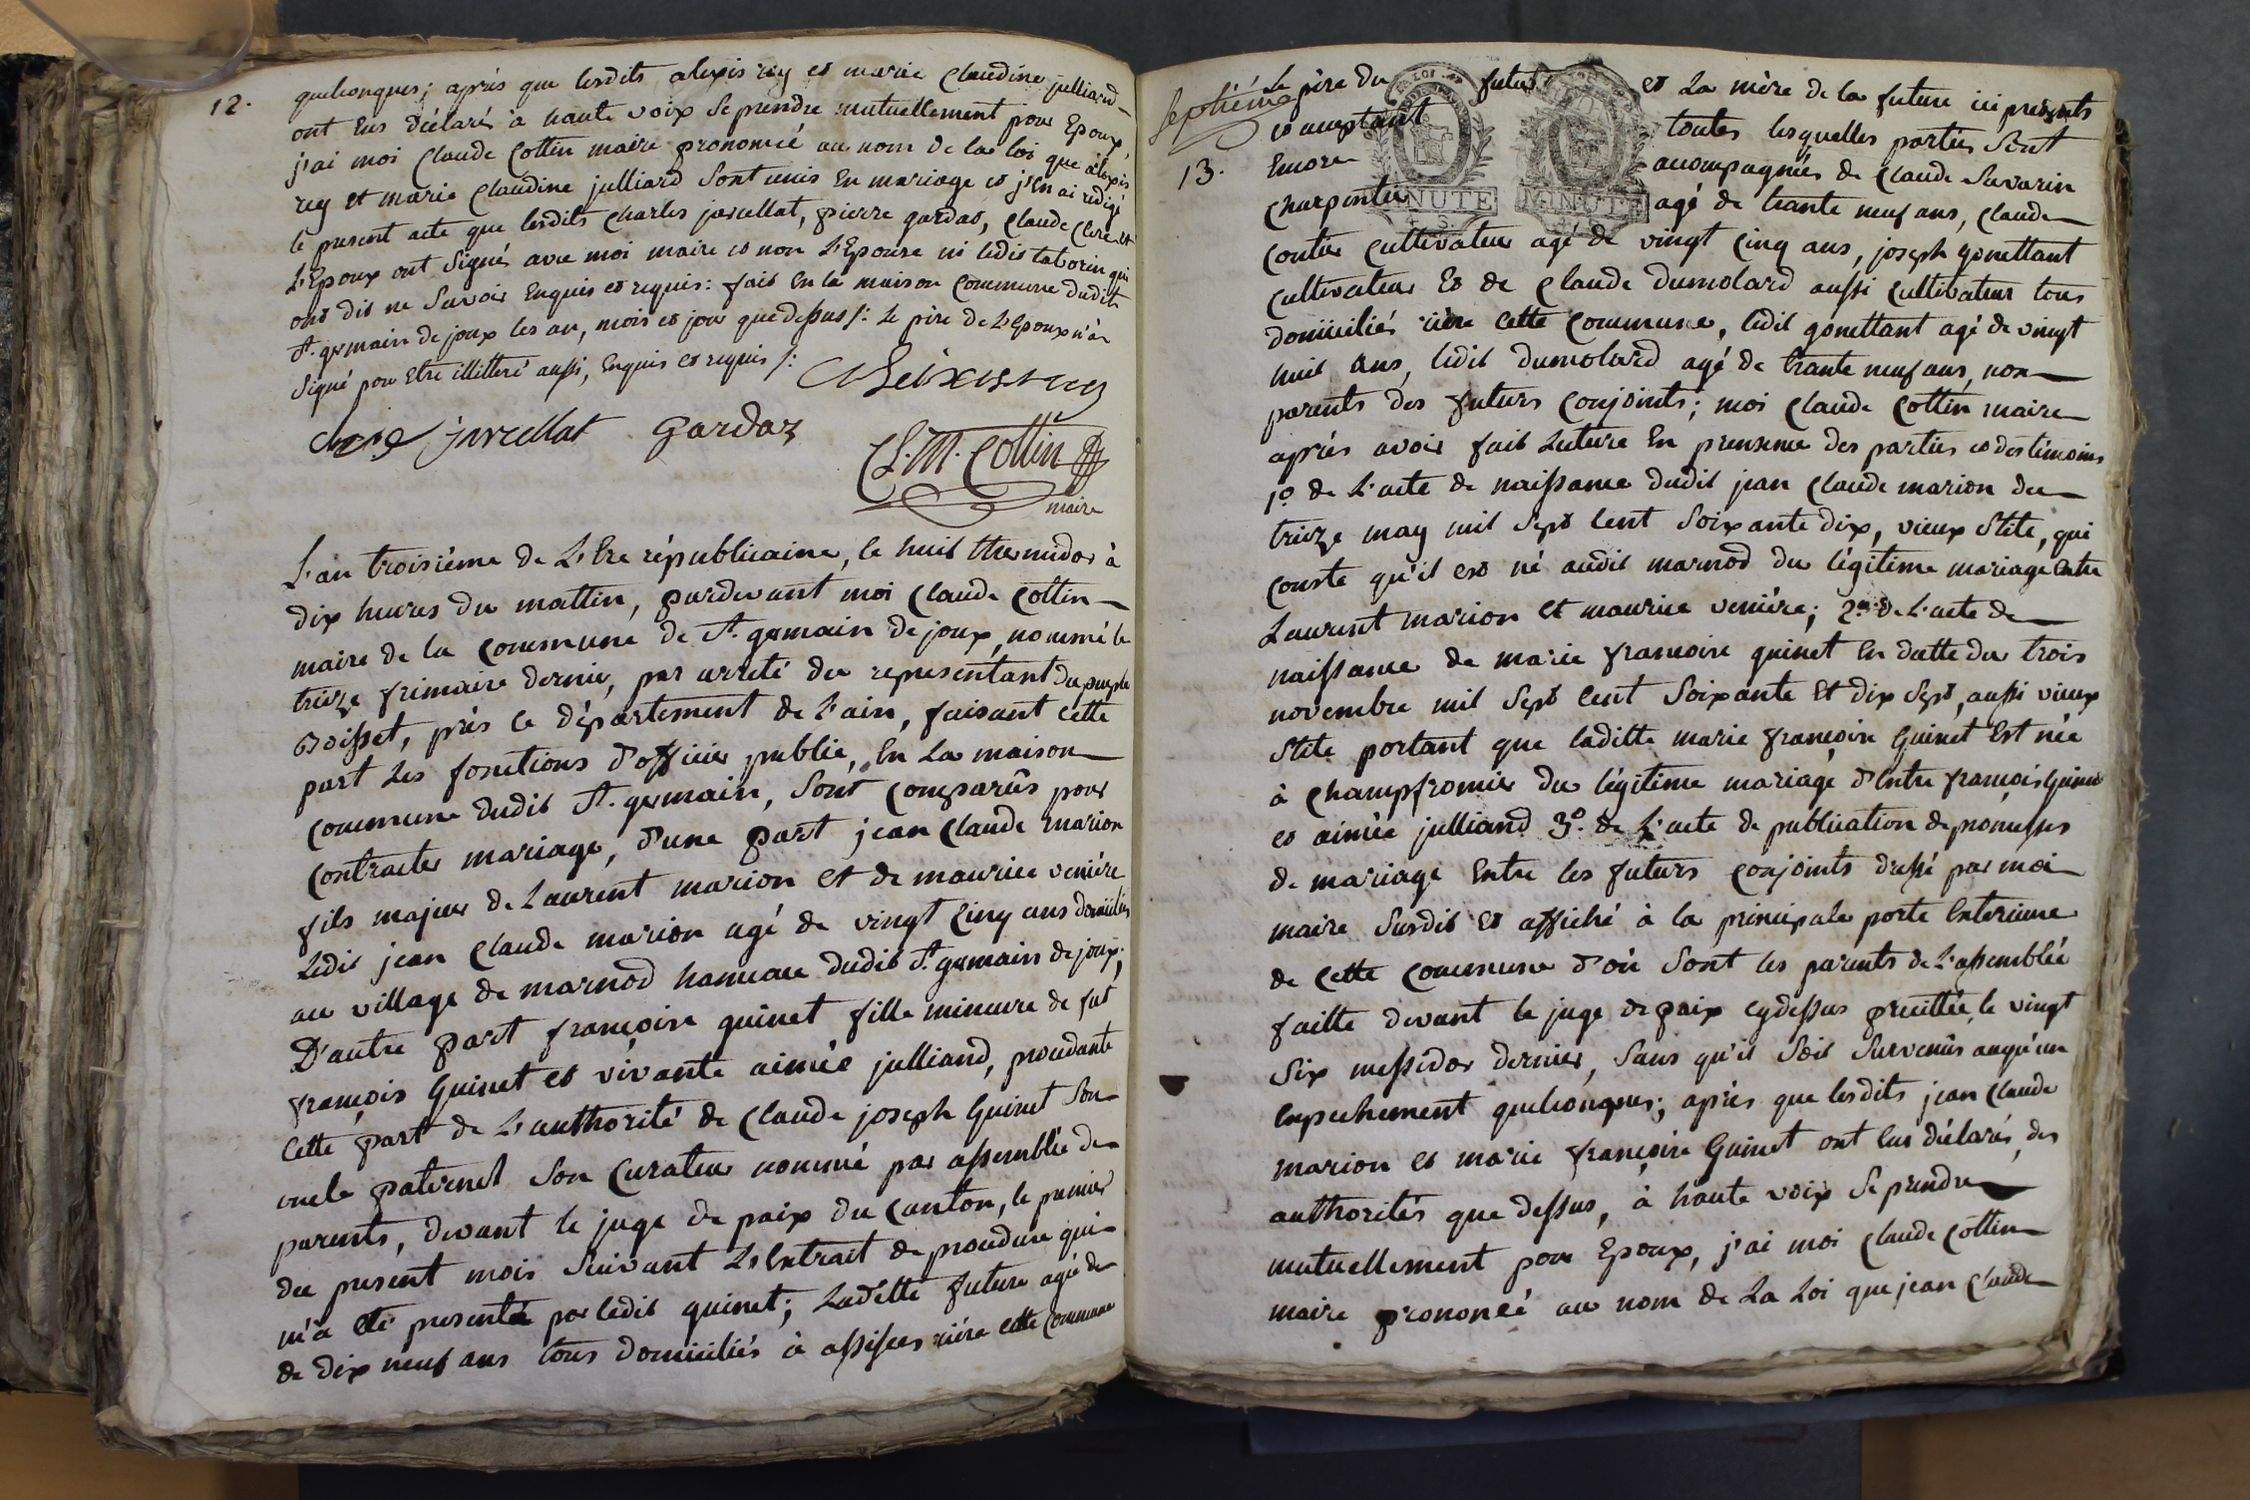 12.
quelconques; après que lesdits alexis rey et marie Claudine julliard
ont Eus déclaré à haute voix se prendre mutuellement pour Epoux,
j'ai moi Claude Cottin maire prononcé au nom de la loi que alexis
rey et marie Claudine julliard sont unis En mariage et j'En ai redigé
le present acte que lesdits Charles jarcellat, pierre gardas, Claude Clerc et
L'Epoux ont signés avec moi maire et non L'Epouse ni ledit taborin qui
ont dit ne savoir Enquis et requis: fait En la maison Commune dudit
St. germain de joux les an, mois et jour que dessus /: Le père de L'Epoux n'a
signé pour Etre illitteré aussi, Enquis et requis /:
Clerc jarcellat gardaz
Cl. M. Cottin
maire
L'an troisiéme de L'Ere républicaine, le huit thermidor à
dix heures du mattin, pardevant moi Claude Cottin
maire de la Commune de St. germain de joux, nommé le
treize frimaire dernier, par arreté du representant du peuple
Boisset, près le département de L'ain, faisant cette
part les fonctions d'officier public, En La maison
Commune dudit St. germain, sont comparûs pour
Contracter mariage, d'une part jean Claude marion
fils majeur de Laurent marion et de maurice venière
Ledit jean Claude marion agé de vingt Cinq ans domicilié
au village de marnod hameau dudit St. germain de joux;
D'autre part françoise guinet fille mineure de fut
françois Guinet et vivante aimée julliand, procedante
Cette part de L'authorité de Claude joseph Guinet son
oncle paternel son Curateur nommé par assemblée de
parents, devant le juge de paix du Canton, le premier
du present mois suivant L'Extrait de procedure qui
m'a été presentée par ledit guinet; Laditte future agée de
de dix neuf ans tous domiciliés à assises rière cette Commune
Septiéme
13.
Le père du futur et La mère de la future ici presents
et acceptant toutes lesquelles parties sont
Encore accompagnées de Claude Savarin
Charpentier agé de trante neuf ans, Claude
MINUTE MINUTE
Coutier Cultivateur agé de vingt Cinq ans, joseph gonettant
Cultivateur Et de Claude Dumolard aussi Cultivateur tous
domiciliés rière cette Commune, ledit gonettant agé de vingt
huit ans, ledit Dumolard agé de trante neuf ans, non
parents des futurs Conjoints; moi Claude Cottin maire
après avoir fait Lecture En presence des parties et des témoins
1º de L'acte de naissance dudit jean Claude marion du
treize may mil sept Cent soixante dix, vieux stile, qui
conste qu'il est né audit marnod du légitime mariage Entre
Laurent marion et maurice venière; 2º de L'acte de
naissance de marie françoise guinet En datte du trois
novembre mil sept Cent soixante Et dix sept, aussi vieux
stile portant que laditte marie françoise Guinet Est née
à Champfromier du légitime mariage d'Entre françois Guinet
et aimée julliand 3º. de L'acte de publication de promesses
de mariage Entre les futurs Conjoints dressé par moi
maire susdit et affiché à la principale porte Exterieure
de cette Commune d'où sont les parents de L'assemblée
faitte devant le juge de paix cydessus precittée, le vingt
six messidor dernier, sans qu'il soit survenûs auqu'un
Empechement quelconques; après que lesdits jean Claude
marion et marie françoise Guinet ont Eus déclarés, des
authorités que dessus, à haute voix se prendre
mutuellement pour Epoux, j'ai moi Claude Cottin
maire prononcé au nom de La Loi que jean Claude